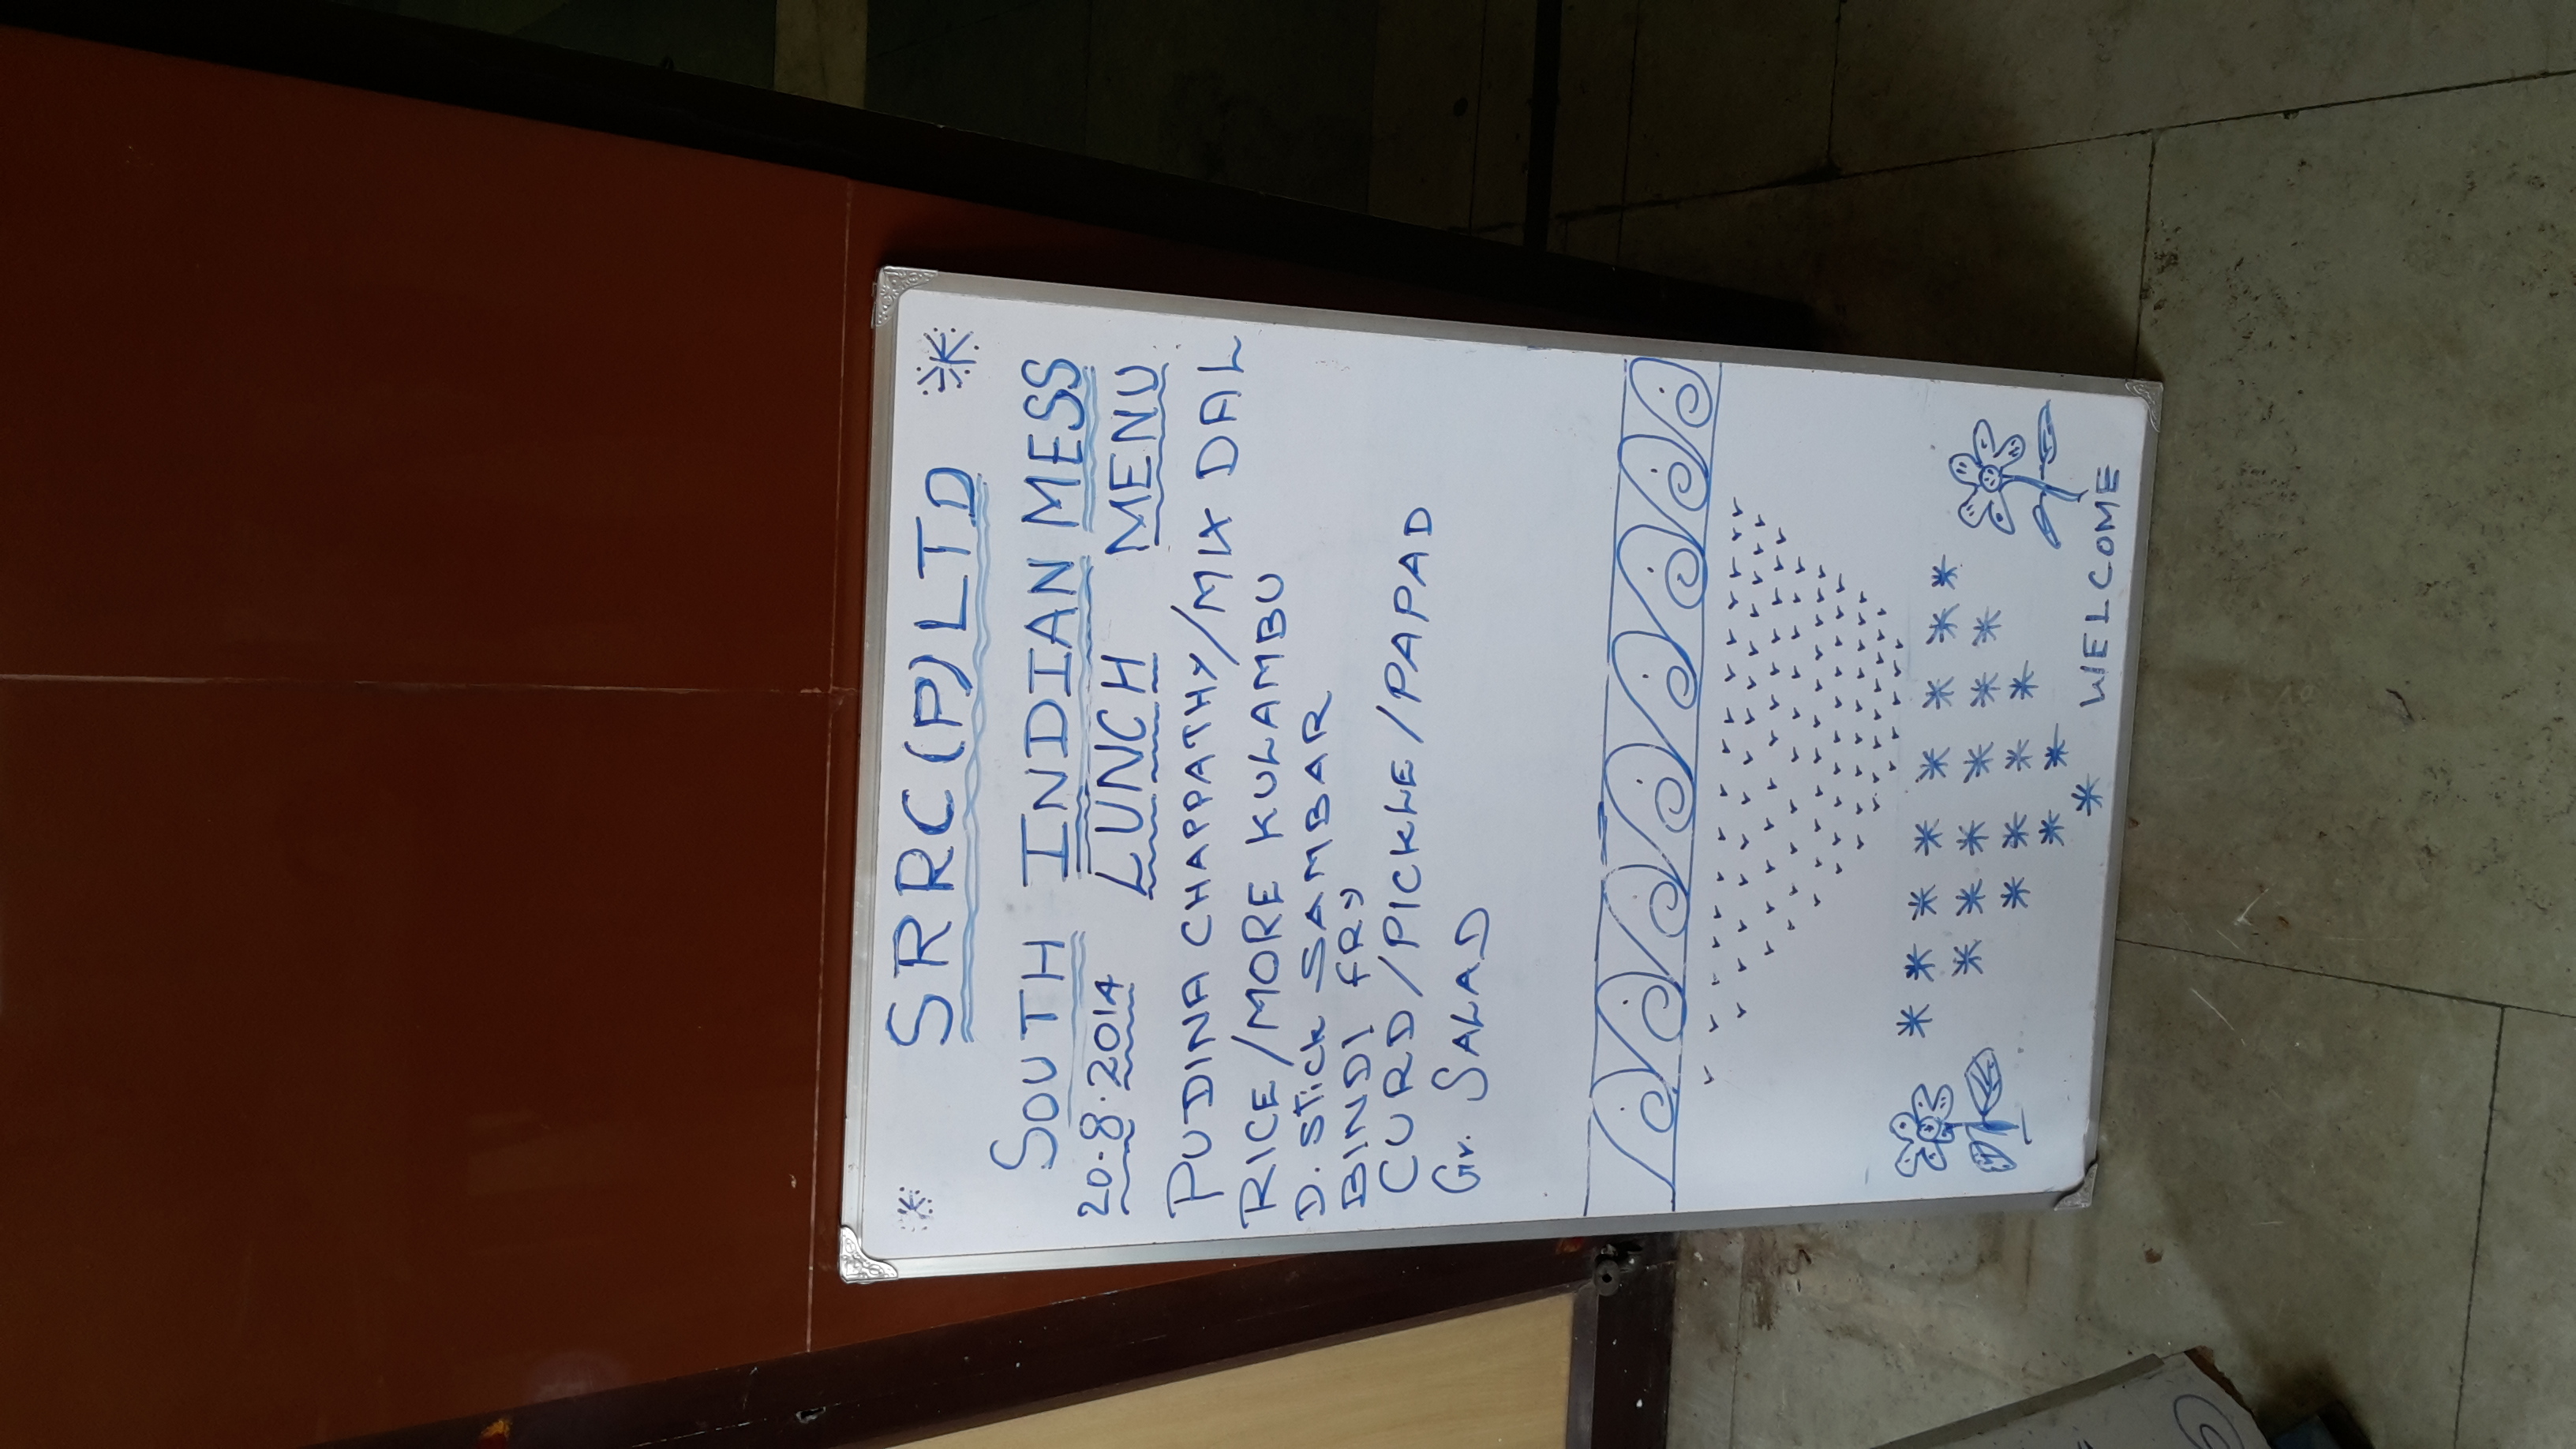 SRRC(P)LTD
SOUTH INDIAN MESS
20.8.2014 LUNCH MENU
PUDINA CHAPPATHY/MIX DAL
RICE/MORE KULAMBU
D. STick SAMBAR
BINDI FRY
CURD/PICKLE/PAPAD
Gr. SALAD
WELCOME